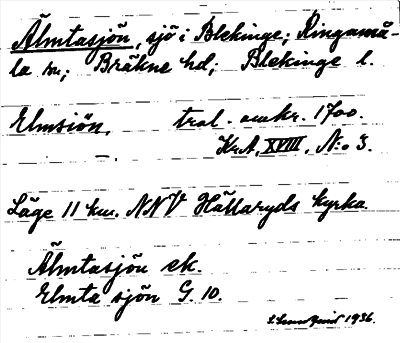 Älmtasjön, sjö i Blekinge; Ringamå-
la sn; Bräkne hd; Blekinge l.
Elmsiön, trol. omkr. 1700.
KrA, XVIII, N:o 3.
Läge 11 km. NNV Hällaryds kyrka
Älmtasjön ek.
Elmta sjön G. 10.
1936.